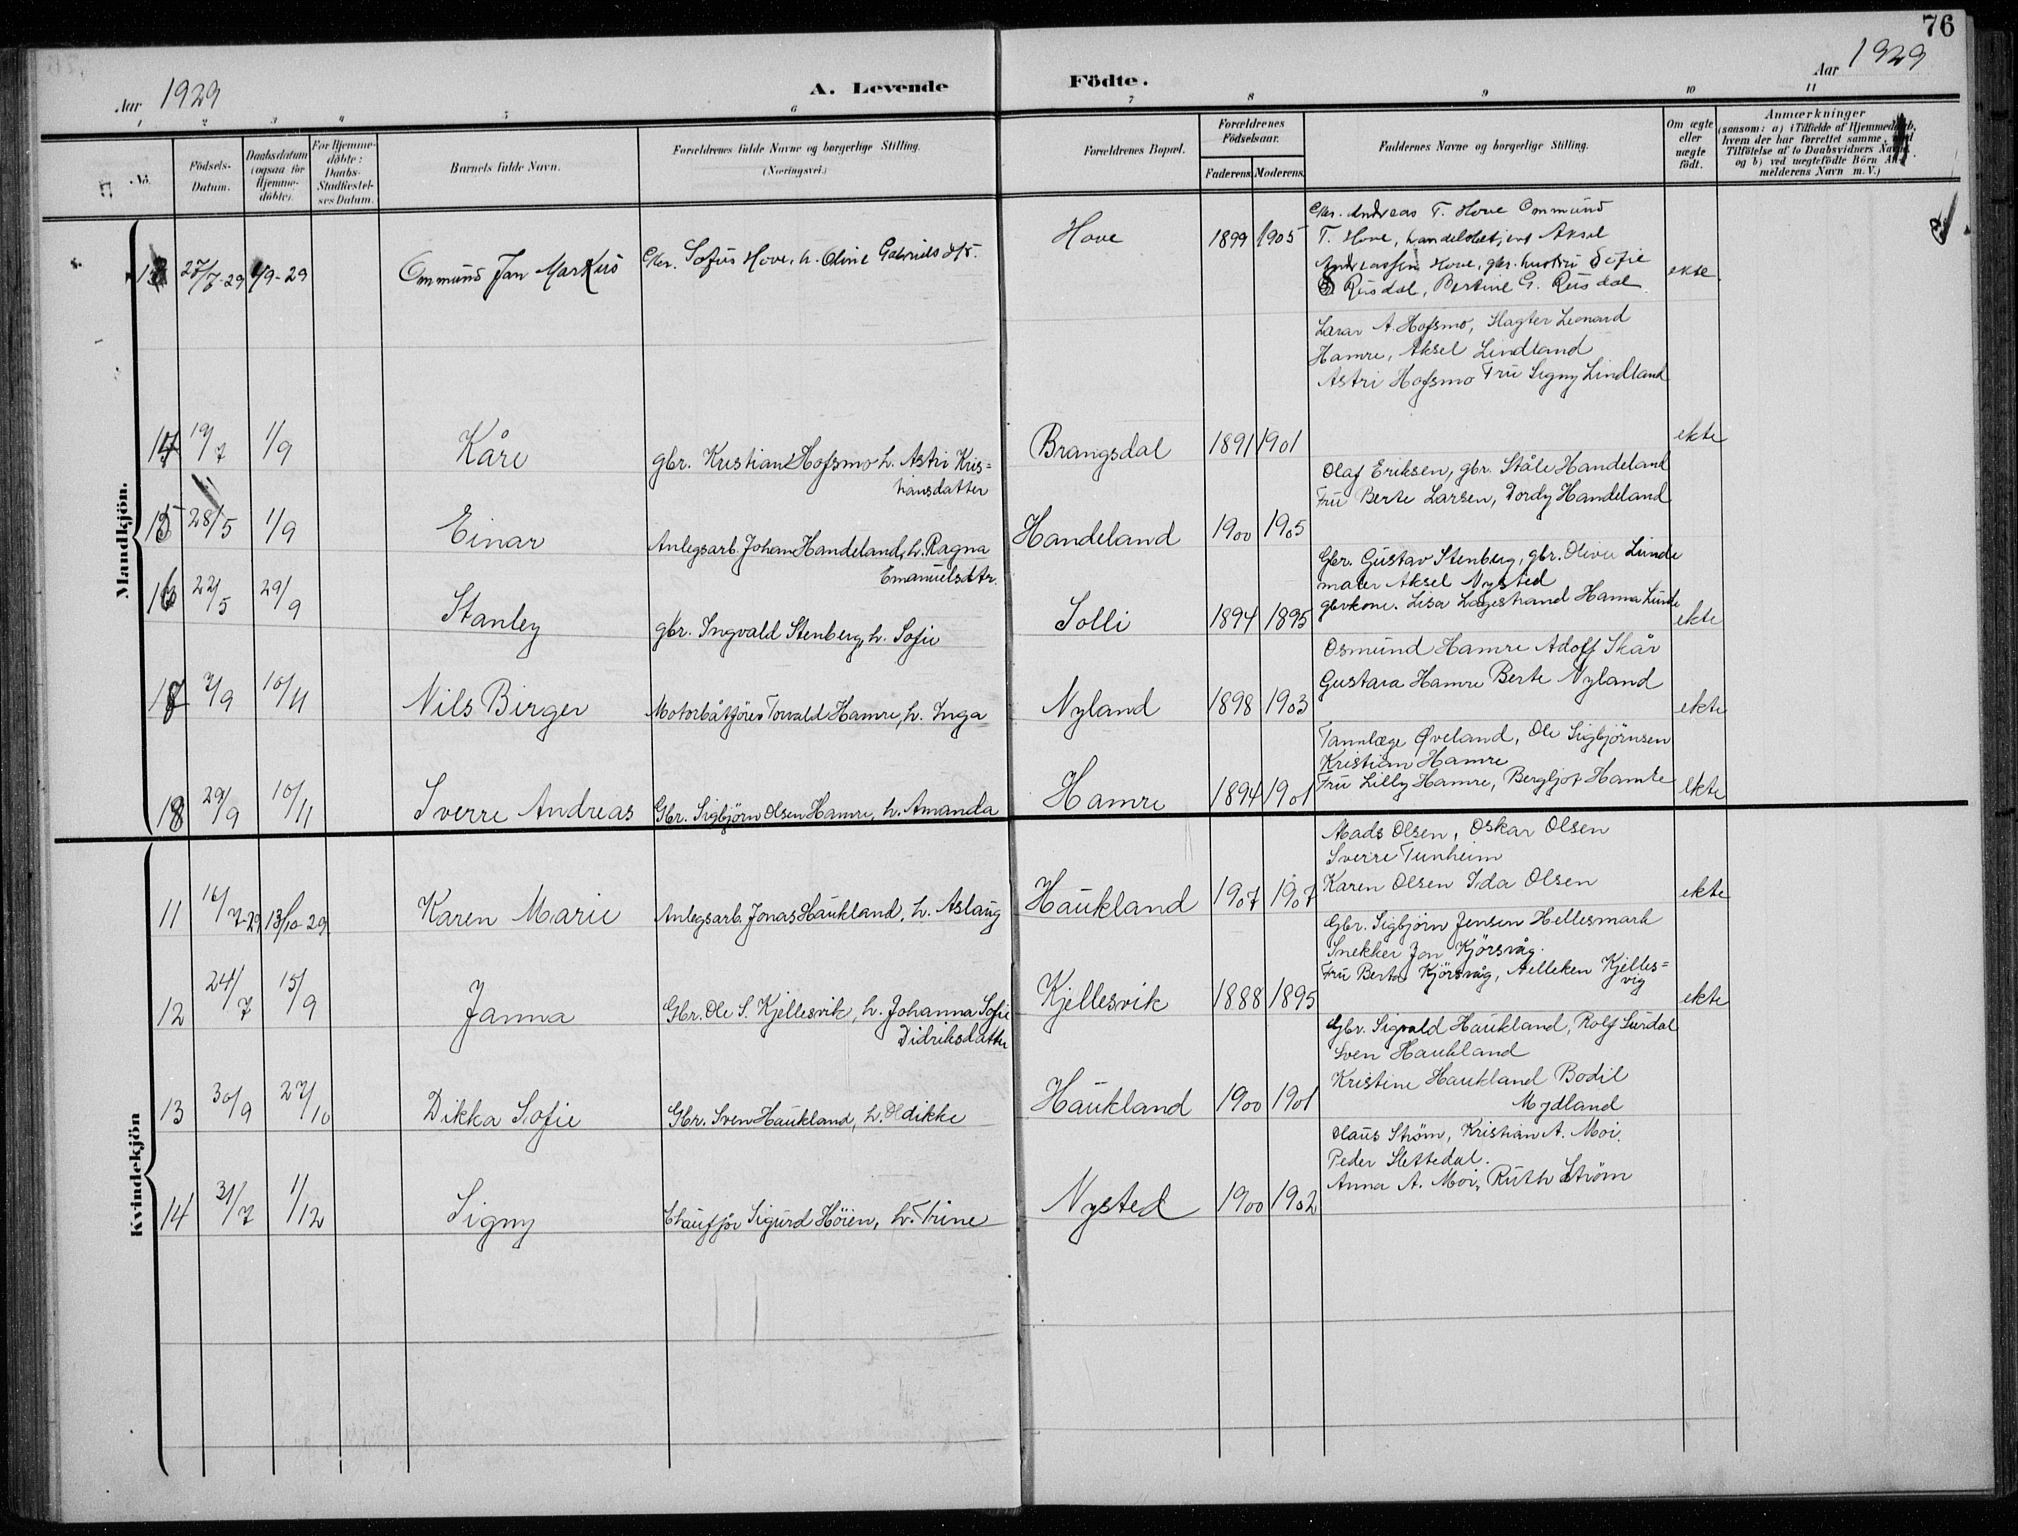 76
Aar 1929
A. Levende Fødte.
Aar 1929
1 2 3 4 5 6 7 8 9 10 11
No.
Födsels-
Datum.
Daabsdatum
(ogsaa for
Hjemme-
döbte).
For Hjemme-
döbte:
Daabs-
Stadfæstel-
ses Datum.
Barnets fulde Navn.
Forældrenes fulde Navne og borgerlige Stilling.
(Næringsvei.)
Forældrenes Bopæl.
Forældrenes
Födselsaar.
Faderens. Moderens.
Faddernes Navne og borgerlige Stilling.
Om ægte
eller
uægte
født.
Anmærkninger
(saasom: a) i Tilfælde af Hjemmedaab,
hvem der har forrettet samme, med
Tilføielse af to Daabsvidners Navne,
og b) ved uægtefödte Börn An-
melderens Navn m. V.)
Mandkjön.
13 27/7-29 1/9-29 Ommund Jan Markus Gbr. Sofus Hove, h. Oline Gabrielsdtr. Hove 1899 1905
Gbr. Andreas T. Hove Ommund
T. Hove, handelsbetjent Aksel
Andreassen Hove, gbr. hustru Sofie
Rusdal, Bertine G. Rusdal
ekte
14 19/7 1/9 Kåre gbr. Kristian Hofsmo h. Astri Kris=
tiansdatter
Brangsdal 1891 1901
Lærar A. Hofsmo, Slagter Leonard
Hamre, Aksel Lindland
Astri Hofsmo Fru Signy Lindland
ekte
15 28/5 1/9 Einar Anlegsarb. Johan Handeland, h. Ragna
Emanuelsdtr.
Handeland 1900 1905
Olaf Eriksen, gbr. Ståle Handeland
Fru Berte Larsen, Dordy Handeland
16 22/5 29/9 Stanley gbr. Ingvald Stenberg, h. Sofie Solli 1894 1895
Gbr. Gustav Stenberg, gbr. Oliver Lunde
maler Aksel Nysted
gbrkone. Lisa Løgestrand Hanna Lunde
ekte
17 2/9 10/11 Nils Birger Motorbåtfører Torvald Hamre, h. Inga Nyland 1898 1903
Osmund Hamre Adolf Skår
Gustava Hamre Berte Nyland
ekte
18 29/9 10/11 Sverre Andreas Gbr. Sigbjörn Olsen Hamre, h. Amanda Hamre 1894 1901
Tannlæge Øveland, Ole Sigbjörnsen
Kristian Hamre
Fru Lilly Hamre, Bergljot Hamre
ekte
Kvindekjön
11 16/7-29 13/10-29 Karen Marie Anlegsarb. Jonas Haukland, h. Aslaug Haukland 1907 1907
Mads Olsen, Oskar Olsen
Sverre Tunheim
Karen Olsen Ida Olsen
ekte
12 24/7 15/9 Janna Gbr. Ole S. Kjellesvik, h. Johanna Sofie
Didriksdatter
Kjellesvik 1888 1895
Gbr. Sigbjörn Jensen Hellesmark
Snekker Jon Kjörsvåg.
Fru Berta Kjörsvåg, Aelleken Kjelles=
vig
ekte
13 30/9 27/10 Dikka Sofie Gbr. Sven Haukland, h. Oldikke Haukland 1900 1901
Gbr. Sigvald Haukland, Rolf Surdal
Sven Haukland
Kristine Haukland Bodil
Mydland
14 31/7 1/12 Signy Chauffør Sigurd Höien, h. Trine Nysted 1900 1902
Olaus Strøm, Kristian A. Moi.
Peder Slettedal.
Anna A. Moi, Ruth Strøm